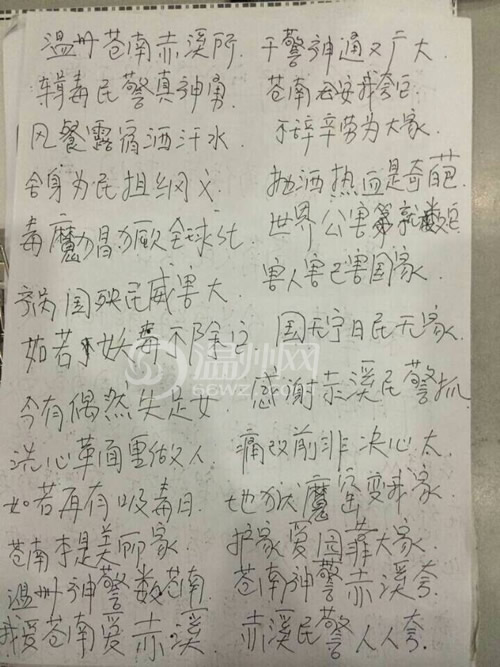 温州苍南赤溪所 干警神通又广大
缉毒民警真神勇 苍南公安我夸它
风餐露宿洒汗水 不辞辛劳为大家
舍身为民担纲义 抛洒热血是奇葩
毒魔猖獗全球化 世界公害第就数它
祸国殃民威害大 害人害己害国家
如若妖毒不除它 国无宁日民无家
今有偶然失足女 感谢赤溪民警抓
洗心革面里做人 痛改前非决心大
如若再有吸毒日 地狱魔窟变我家
苍南本是美丽家 护家爱国靠大家
温州神警数苍南 苍南神警赤溪夸
我爱苍南爱赤溪 赤溪民警人人夸
温州网
66WZ.COM